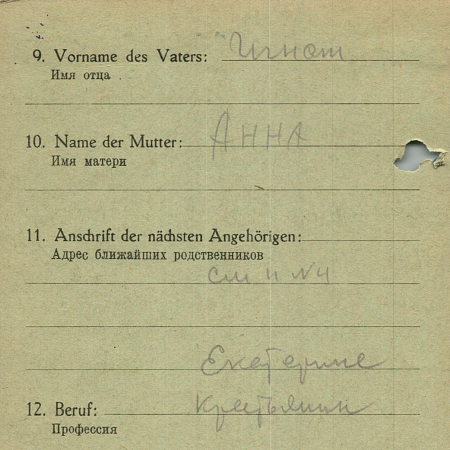 9. Vorname des Vaters: Игнат
Имя отца
10. Name der Mutter: АННА
Имя матери
11. Anschrift der nächsten Angehörigen:
Адрес ближайших родственников
см п N4
Екатерине
12. Beruf: Крестьянин
Профессия